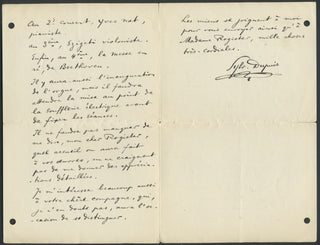 Au 2e concert, Yves Nat,
pianiste.
Au 3ème, Szigeti violoniste.
Enfin, au 4ème, la messe en
ré, de Beethoven.
Il y aura aussi l'inauguration
de l'orgue, mais il faudra
attendre la mise au point de
la soufflerie électrique avant
de fixer les séances.
Il ne faudra pas manquer de
me dire, mon cher Rogister,
quel accueil on aura fait
à vos œuvres, en ne craignant
pas de me donner des apprécia-
tions détaillées.
Je m'intéresse beaucoup aussi
à votre chère compagne, qui,
je n'en doute pas, aura l'oc-
casion de se distinguer.
Les miens se joignent à moi
pour vous envoyer ainsi qu'à
Madame Rogister, mille choses
très cordiales.
Sylv. Dupuis